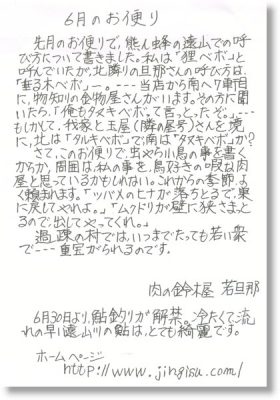 6月のお便り
先月のお便りで、熊ん蜂の遠山での呼
び方について書きました。私は「狸ベボ」と
呼んでいたが、北隣りの旦那さんの呼び方は、
「垂る木ベボ」ー。---当店から南へ7軒目
に、物知りの金物屋さんがいます。その方に聞
いたら、「俺もタヌキベボって言っとったぞ。」---
もしかして、我家と玉屋(隣の屋号)さんを境
に、北は「タルキベボ」で、南は「タヌキベボ」か?
さて、このお便りで、虫やら小鳥の事を書く
からか、周囲は、私の事を、鳥好きの暇な肉
屋と思っているかもしれない。これからの季節、よ
く頼まれます。「ツバメのヒナが落ちとるで、巣
に戻してやれよ。」「ムクドリが壁に狭さまっと
るので、出してやってくれ。」
過疎の村では、いつまでたっても若い衆
で---重宝がられるのです。
肉の鈴木屋 若旦那
6月30日より、鮎釣りが解禁。冷たくて流
れの早い遠山川の鮎は、とても綺麗です。
ホームページ
http://www.jingisu.com/